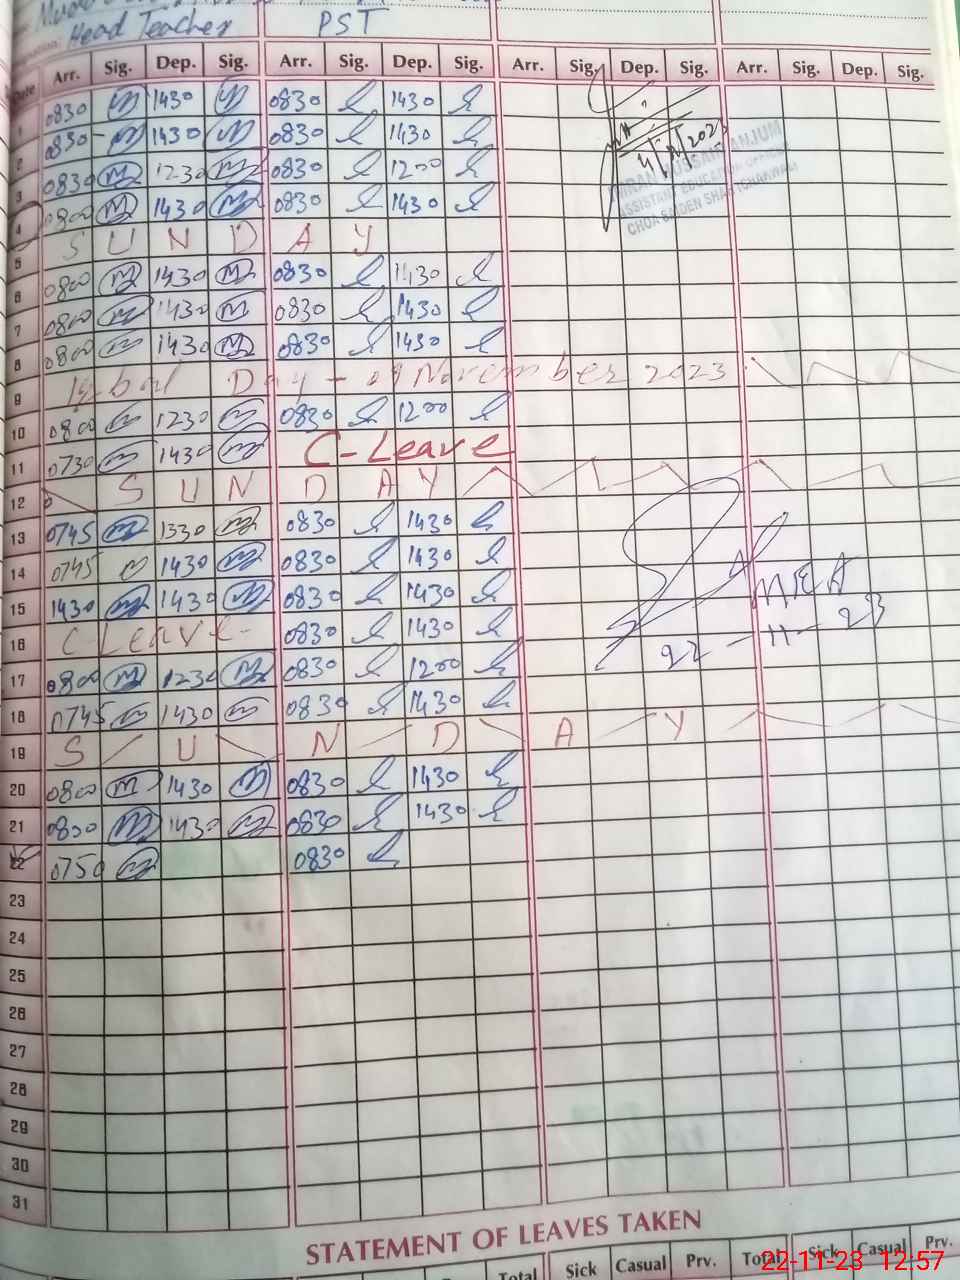 Head Teacher PST
Date Arr. Sig. Dep. Sig. Arr. Sig. Dep. Sig. Arr. Sig. Dep. Sig. Arr. Sig. Dep. Sig.
1 0830 1430 0830 1430
2 0830 1430 0830 1430
3 0830 1230 0830 1200
4 0800 1430 0830 1430
5 SUNDAY
6 0800 1430 0830 1430
7 0800 1430 0830 1430
8 0800 1430 0830 1430
9 Iqbal Day - 09 November 2023
10 0800 1230 0830 1200
11 0730 1430 C-Leave
12 SUNDAY
13 0745 1330 0830 1430
14 0745 1430 0830 1430
15 1430 1430 0830 1430
16 C Leave 0830 1430
17 0800 1230 0830 1200
18 0745 1430 0830 1430
19 SUNDAY
20 0800 1430 0830 1430
21 0800 1430 0830 1430
22 0750 0830
23
24
25
26
27
28
29
30
31
IMRAN HUSSAIN ANJUM
ASSISTANT EDUCATION OFFICER
MEA
22-11-23
STATEMENT OF LEAVES TAKEN
Total Sick Casual Prv. Total Sick Casual Prv.
22-11-23 12:57